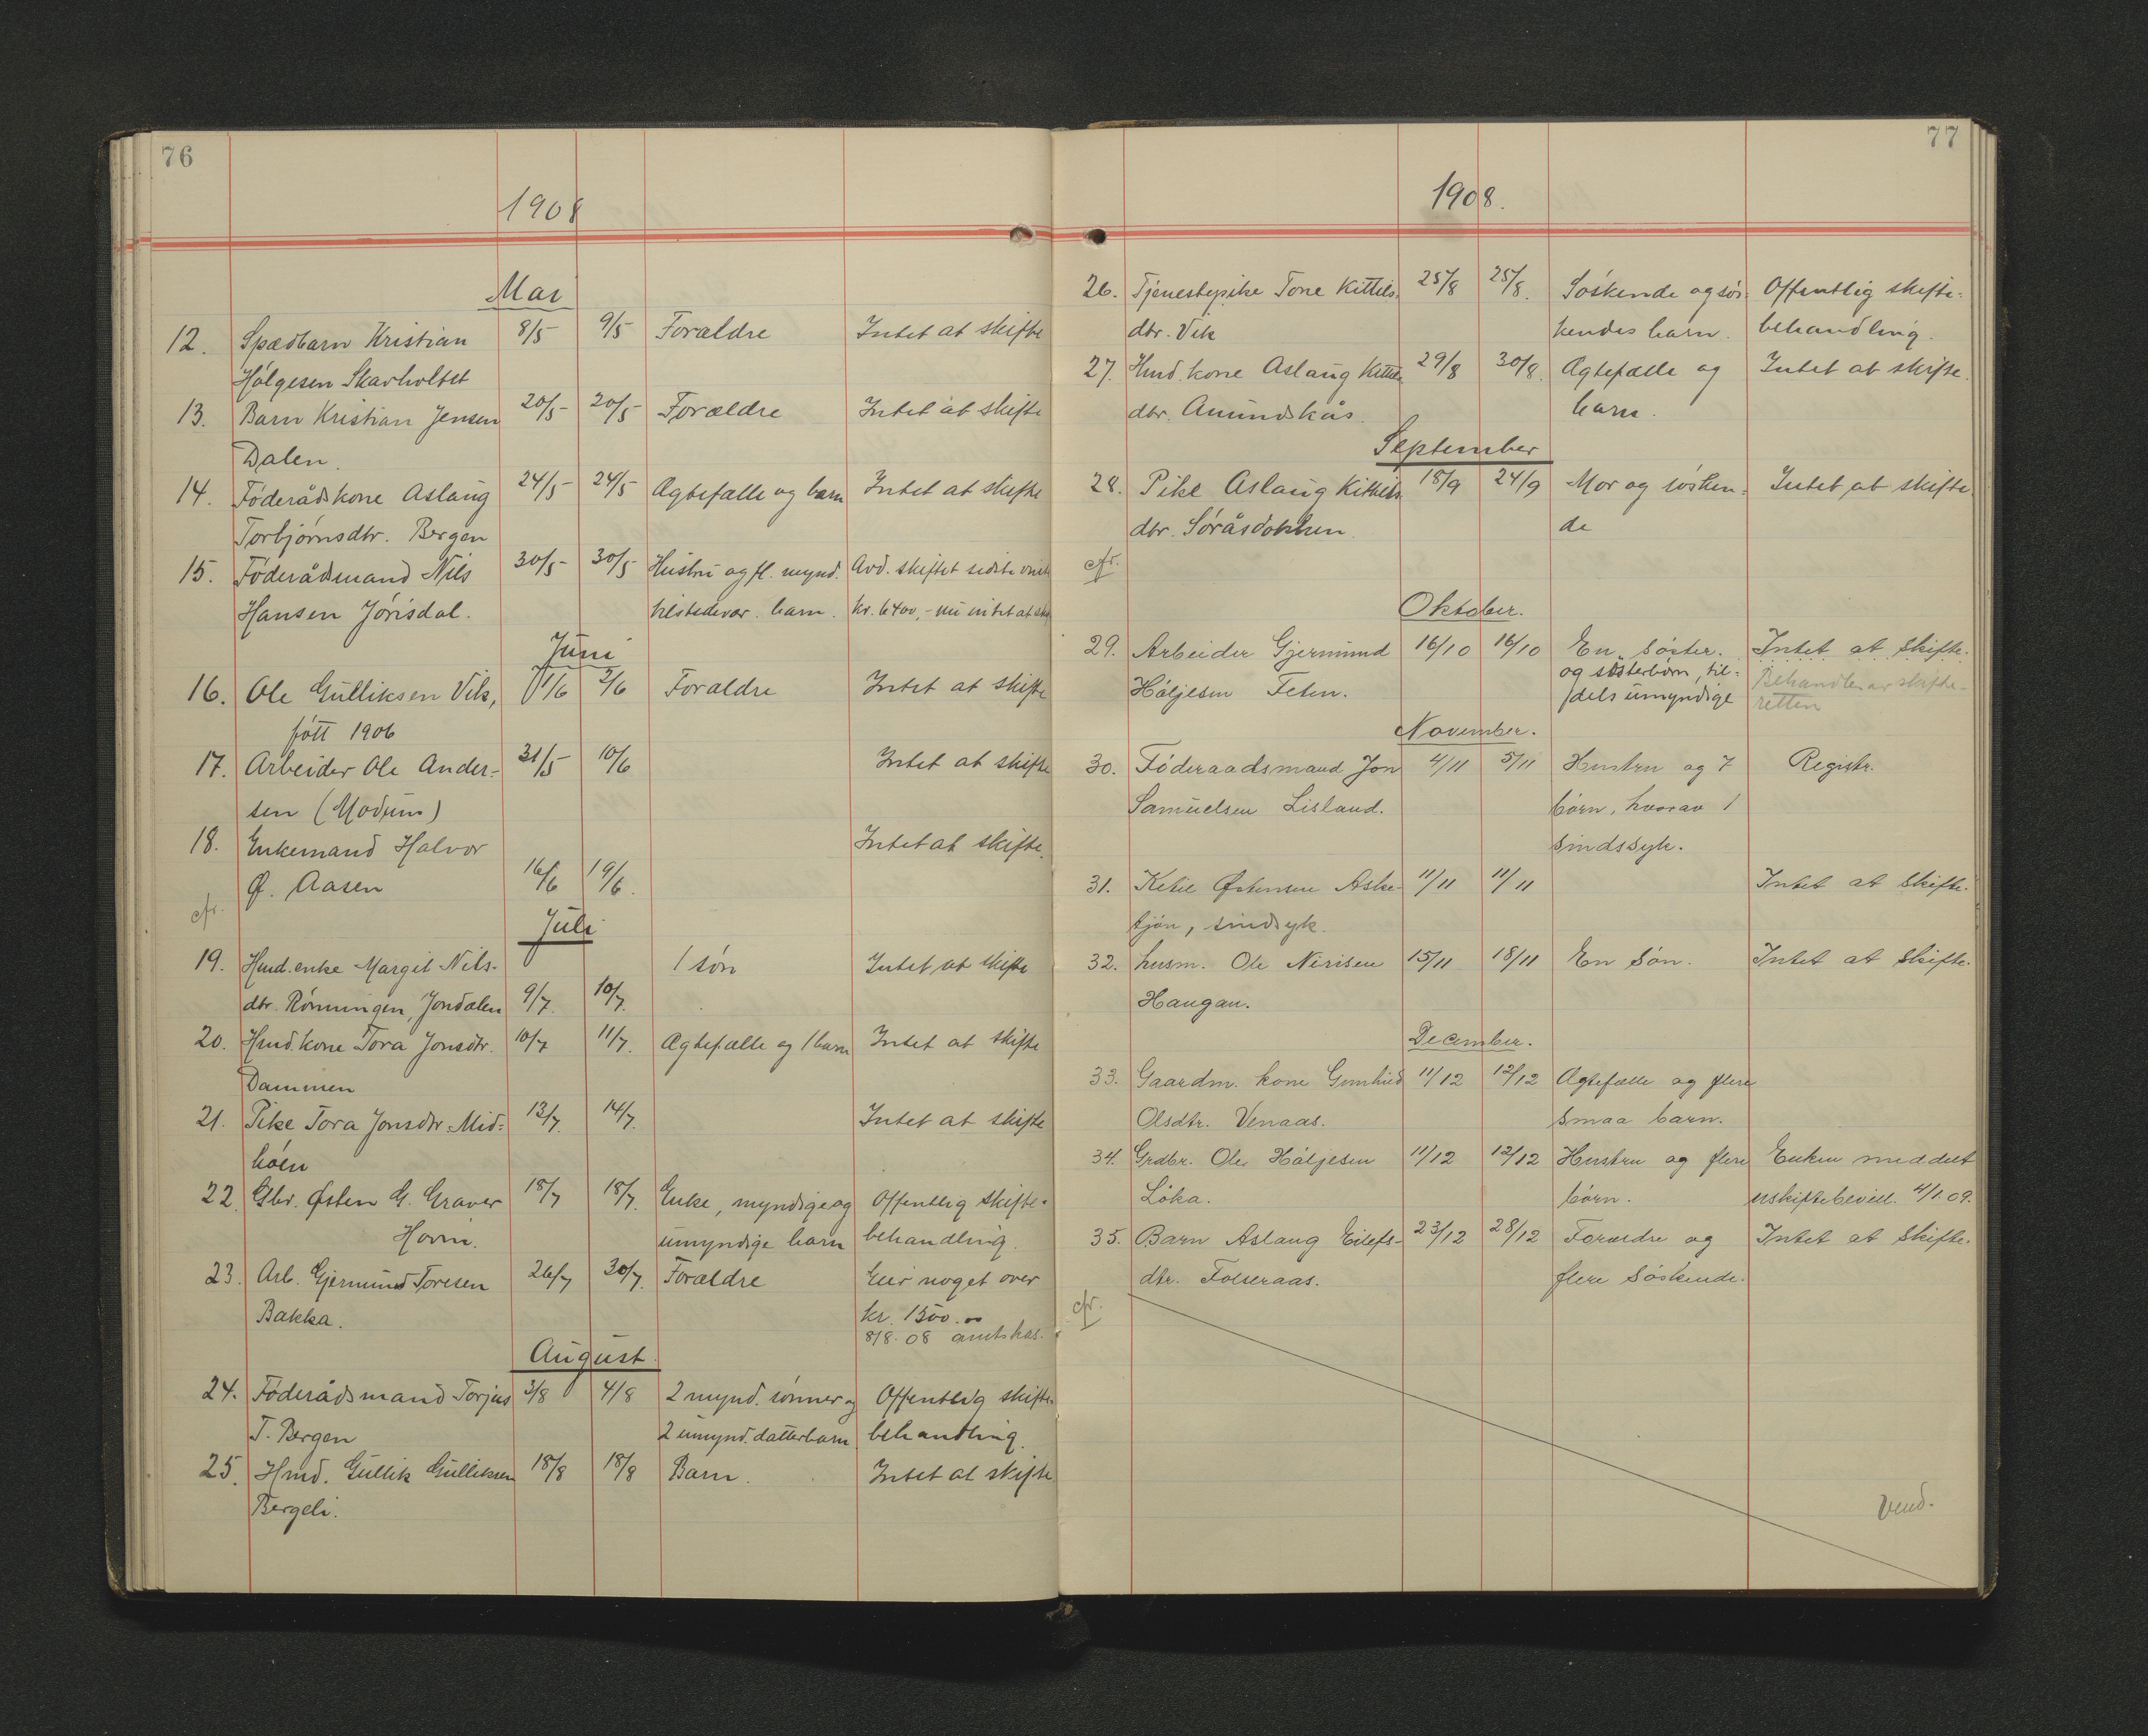 76
1908
Mai
12. Spædbarn Kristian 8/5 9/5 Forældre Intet at skifte
Hølgesen Skarholtet
13. Barn Kristian Jensen 20/5 20/5 Forældre Intet at skifte
Dalen.
14. Føderådskone Aslaug 24/5 24/5 Ægtefælle og barn Intet at skifte
Torbjørnsdtr. Bergen
15. Føderådsmand Nils 30/5 30/5 Hustru og fl. mynd. Avd. skiftet sidste
Hansen Jørisdal. tilstedevær. barn. kr. 6400,- nu intet at
Juni
16. Ole Gulliksen Vik, 1/6 2/6 Forældre Intet at skifte
født 1906
17. Arbeider Ole Ander- 31/5 10/6 Intet at skifte
sen (Modum)
18. Enkemand Halvor Intet at skifte.
Ø. Aasen 16/6 19/6.
cfr.
Juli
19. Hmd. enke Margit Nils- 1 søn Intet at skifte
dtr. Rønningen, Jondalen 9/7. 10/7.
20. Hmd. kone Tora Jonsdtr. 10/7 11/7. Ægtefælle og 1 barn Intet at skifte
Dammen
21. Pike Tora Jonsdtr. Mid- 13/7. 14/7. Intet at skifte
bøen
22. Gbr. Østen G. Graver 18/7 18/7. Enke, myndige og Offentlig skifte-
Hovin. umyndige barn behandling.
23. Arb. Gjermund Toresen 26/7 30/7. Forældre Eier noget over
Bakka. kr. 1500.00
8/8.08 amtskas.
August.
24. Føderådsmand Torjus 3/8 4/8 2 mynd. sønner og Offentlig skifte-
T. Bergen 2 umynd. datterbarn behandling.
25. Hmd. Gullik Gulliksen 18/8 18/8 Barn. Intet at skifte.
Bergeli.
77
1908.
26. Tjenestepike Tone Kittils- 25/8 25/8. Søskende og søs- Offentlig skifte-
dtr. Vik kendes barn. behandling.
27. Hmd. kone Aslaug Kittils 29/8 30/8. Ægtefælle og Intet at skifte.
dtr. Amundskås. barn.
September
28. Pike Aslaug Kittils 18/9 24/9 Mor og søsken- Intet at skifte.
dtr. Søråsdokken. de
cfr.
Oktober.
29. Arbeider Gjermund 16/10 16/10 En søster. Intet at skifte.
og søsterbørn, til-
Høljesen Felen. dels umyndige Behandles av skifte-
retten
November.
30. Føderaadsmand Jon 4/11 5/11 Hustru og 7 Registr.
Samuelsen Lisland. børn, hvorav 1
sindssyk.
31. Ketil Østensen Aske- 11/11 11/11 Intet at skifte.
tjøn, sindsyk.
32. husm. Ole Nirisen 15/11 18/11 En søn. Intet at skifte.
Haugan.
December.
33. Gaardm. kone Gunhild 11/12 12/12 Ægtefælle og flere
Olsdtr. Venaas. smaa barn.
34. Grdbr. Ole Høljesen 11/12 12/12 Hustru og flere Enken meddelt
Løka. børn. uskiftebevill. 4/1.09.
35. Barn Aslaug Eilefs- 23/12 28/12 Forældre og Intet at skifte.
dtr. Folseraas. flere søskende.
cfr.
Vend.